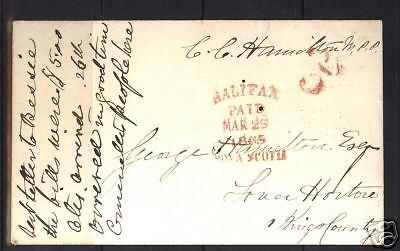 C. C. Hamilton M.P.P.
HALIFAX
PAID
MAR 25
NOVA SCOTIA
George Hamilton Esq
Lower Horton
Kings County
last letter to Bessie
the bills were $500
arrived 26th
in good time
people here